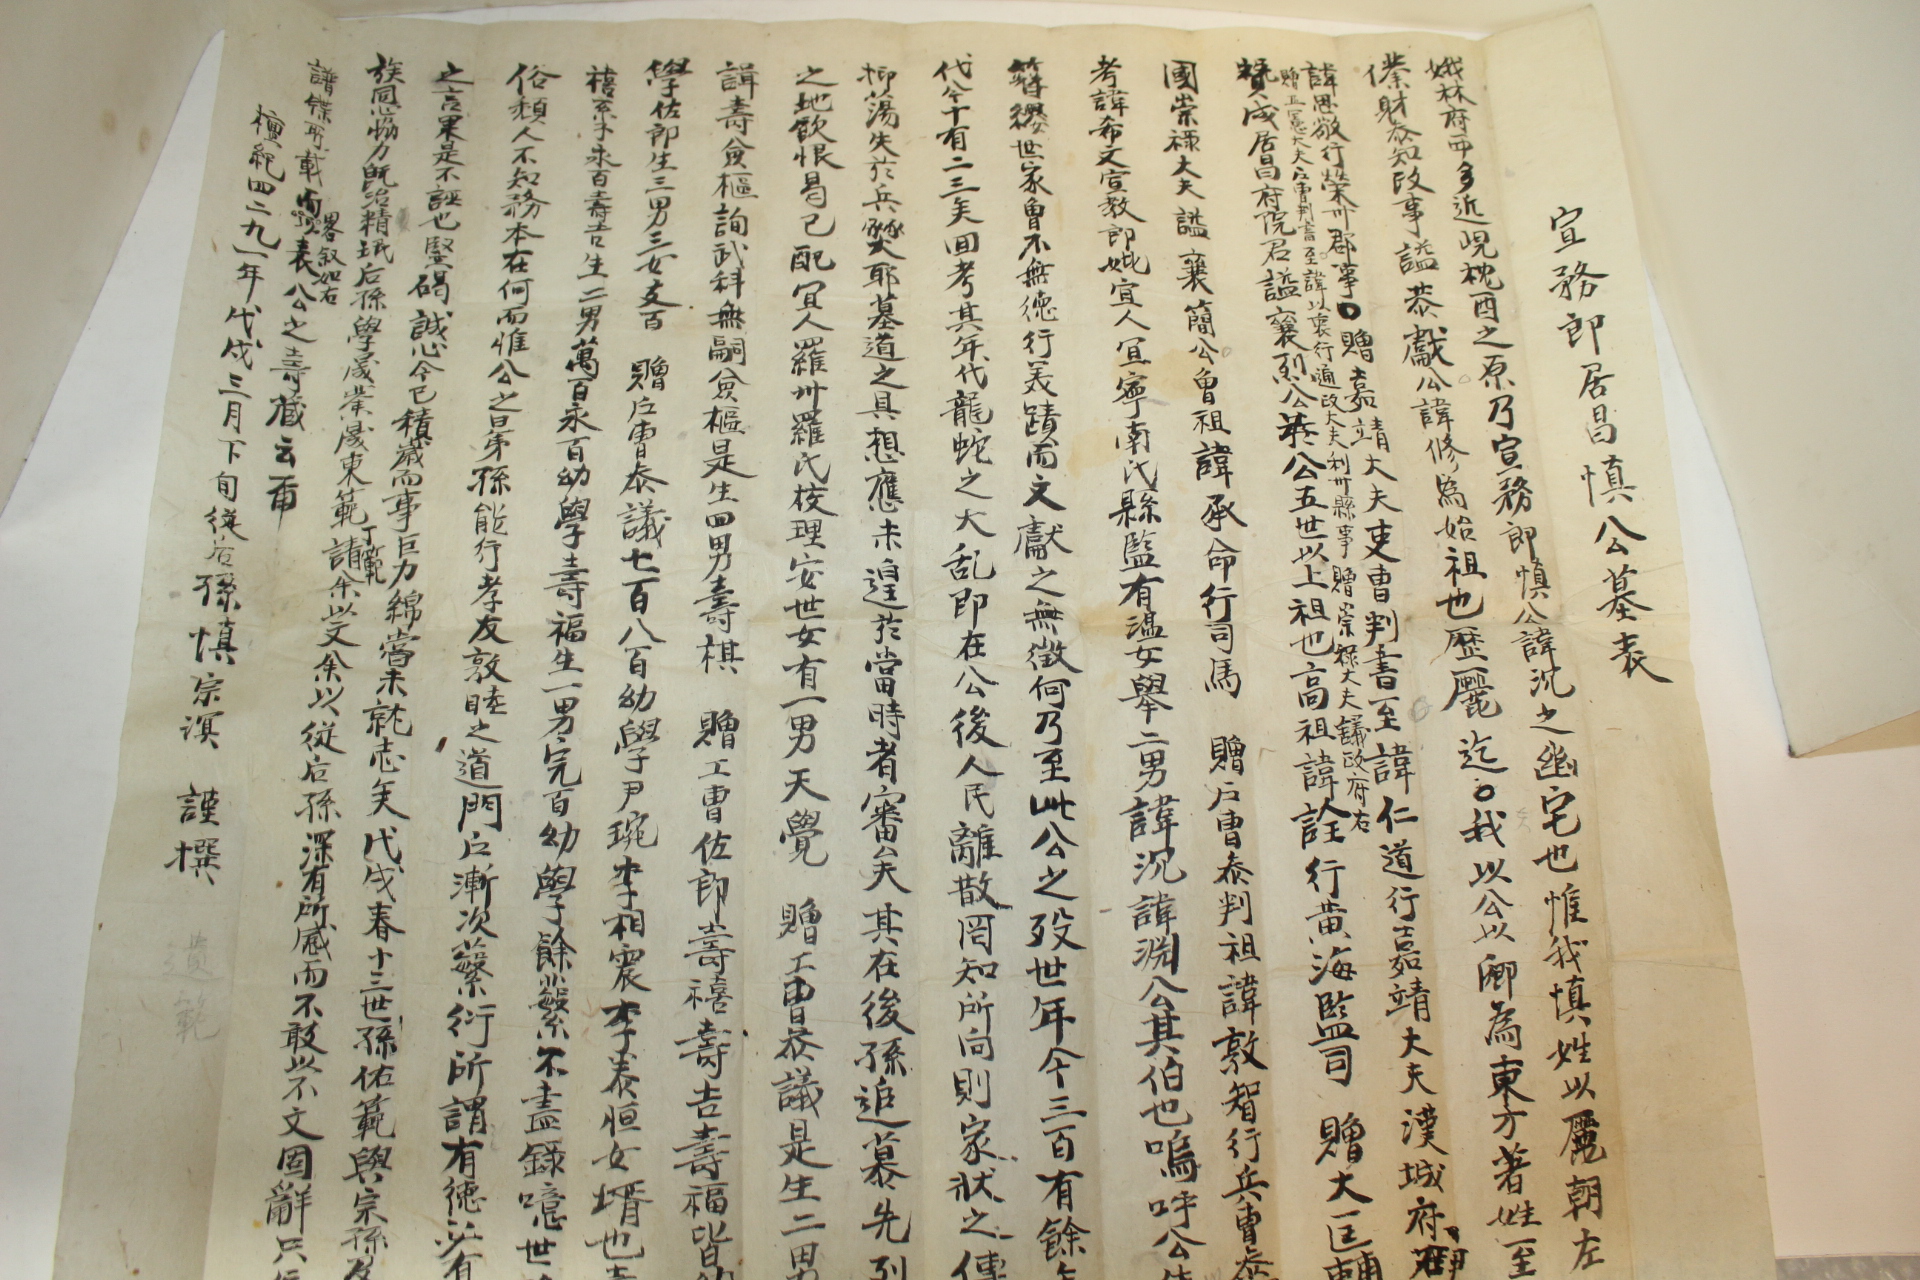 宣務郎居昌慎公墓表
娥林府西多近峴枕酉之原乃宣務郎慎公諱沉之幽宅也惟我慎姓以麗朝左
僕射叅知政事諡恭獻公諱修爲始祖也歷麗迄我以公以卿爲東方著姓至
諱思敬行榮州郡事贈嘉靖大夫吏曹判書至諱仁道行嘉靖大夫漢城府尹
贈正憲大夫戶曹判書至諱以衷行通政大夫利州縣事贈崇祿大夫議政府右
贊成居昌府院君諡襄烈公公五世以上祖也高祖諱詮行黃海監司 贈大匡輔
國崇祿大夫諡襄簡公曾祖諱承命行司馬 贈戶曹叅判祖諱敦智行兵曹叅
考諱希文宣教郎妣宜人宜寧南氏縣監有溫女舉二男諱沉諱淵公其伯也嗚呼公
簪纓世家曾不無德行美蹟而文獻之無徵何乃至此公之歿世年今三百有餘
代今十有二三矣回考其年代龍蛇之大乱即在公後人民離散罔知所向則家狀之傳
抑蕩失於兵燹耶墓道之具想應未遑於當時者審矣其在後孫追慕先列
之地飲恨曷已配宜人羅州羅氏校理安世女有一男天覺 贈工曹叅議是生二男
諱壽 樞詢武科無嗣 樞是生四男壽棋 贈工曹佐郎壽禧壽吉壽福皆
學佐郎生三男三女支百 贈戶曹叅議七百八百幼學尹琬李相震李泰恒女壻也
禧系子永百壽吉生二男萬百永百幼學壽福生一男完百幼學餘繁不盡錄噫世
俗頹人不知務本在何而惟公之昆弟孫能行孝友敦睦之道門戶漸次蕃衍所謂有德必有
之言果是不誣也竪碣誠心今已積歲而事巨力綿嘗未就志矣戊戌春十三世孫佑範與宗孫
族同心協力旣治精珉后孫學晟業晟東範丁範請余以文余以從后孫深有所感而不敢以不文固辭只
譜牒所載畧叙如右以表公之壽藏云爾
檀紀四二九一年戊戌三月下旬從后孫慎宗溟 謹撰